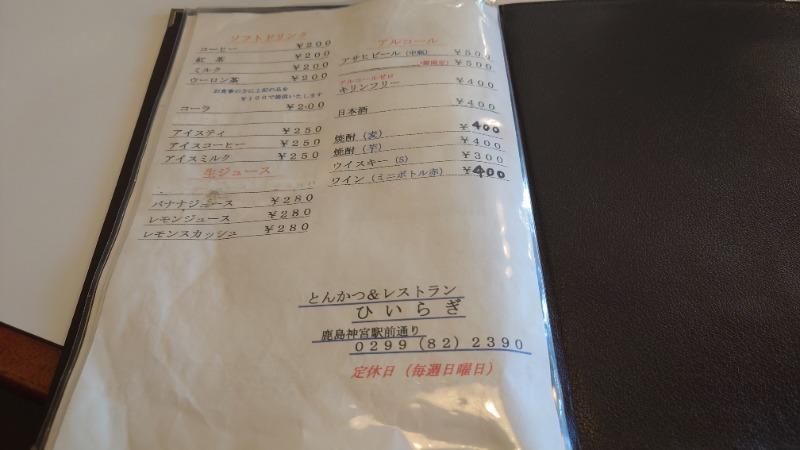 ソフトドリンク
コーヒー ￥200
紅茶 ￥200
ミルク ￥200
ウーロン茶 ￥200
お食事の方に上記の品を
￥100で提供いたします
コーラ ￥200
アイスティ ￥250
アイスコーヒー ￥250
アイスミルク ￥250
生ジュース
バナナジュース ￥280
レモンジュース ￥280
レモンスカッシュ ￥280
アルコール
アサヒビール（中瓶） ￥500
￥500
アルコールゼロ
キリンフリー ￥400
日本酒 ￥400
焼酎（麦） ￥400
焼酎（芋） ￥400
ウイスキー（S） ￥300
ワイン（ミニボトル赤） ￥400
とんかつ＆レストラン
ひいらぎ
鹿島神宮駅前通り
0299（82）2390
定休日（毎週日曜日）